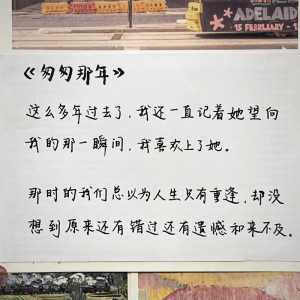 ADELAIDE
15 FEBRUARY - 1
《匆匆那年》
这么多年过去了,我还一直记着她望向
我的那一瞬间,我喜欢上了她。
那时的我们总以为人生只有重逢,却没
想到原来还有错过还有遗憾和来不及。